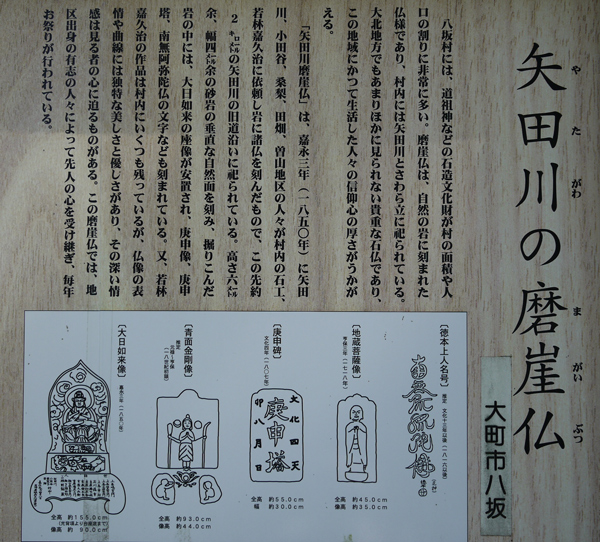 矢田川の磨崖仏
や た がわ ま がい ぶつ
大町市八坂
八坂村には、道祖神などの石造文化財が村の面積や人
口の割りに非常に多い。磨崖仏は、自然の岩に刻まれた
仏様であり、村内には矢田川とさわら立に祀られている。
大北地方でもあまりほかに見られない貴重な石仏であり、
この地域にかつて生活した人々の信仰心の厚さがうかが
える。
「矢田川磨崖仏」は、嘉永三年（一八五〇年）に矢田
川、小田谷、桑梨、田畑、曽山地区の人々が村内の石工、
若林嘉久治に依頼し岩に諸仏を刻んだもので、この先約
2キロメートルの矢田川の旧道沿いに祀られている。高さ六メートル
余、幅四メートル余の砂岩の垂直な自然面を刻み、掘りこんだ
岩の中には、大日如来の座像が安置され、庚申像、庚申
塔、南無阿弥陀仏の文字なども刻まれている。又、若林
嘉久治の作品は村内にいくつも残っているが、仏像の表
情や曲線には独特な美しさと優しさがあり、その深い情
感は見る者の心に迫るものがある。この磨崖仏では、地
区出身の有志の人々によって先人の心を受け継ぎ、毎年
お祭りが行われている。
〔徳本上人名号〕
推定 文化十三年以後（一八一六以後）
南無阿弥陀佛
徳本
〔地蔵菩薩像〕
享保三年（一七一八年）
全高 約45.0cm
像高 約35.0cm
〔庚申碑〕
文化四年（一八〇七年）
文化四天
庚申塔
卯八月日
全高 約55.0cm
幅 約30.0cm
〔青面金剛像〕
推定
元禄～享保
（一八世紀初頭）
全高 約93.0cm
像高 約44.0cm
〔大日如来像〕
嘉永三年（一八五〇年）
全高 約155.0cm
（光背頂より台座底まで）
像高 約 90.0cm